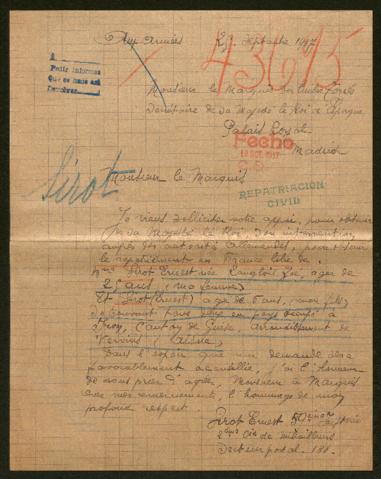 Aux Armées 29 Septembre 1917
43645
A
Pedir informes
Devolver
Monsieur le Marquis
Secrétaire de Sa Majesté le Roi d'Espagne
Palais Royal
Madrid
Fecho
10 OCT. 1917
Sirot
Monsieur le Marquis
REPATRIACION
CIVIL
Je viens solliciter votre appui, pour obtenir
de Sa Majesté le Roi, son intervention
auprès des autorités allemandes, pour obtenir
le rapatriement en France libre de
Mme Sirot Ernest née Langlois Zoé, agée de
25 ans (ma femme)
Et Sirot (Ernest) agé de 5 ans, (mon fils)
se trouvant tous deux en pays occupé à
Canton de Guise, arrondissement de
Vervins (Aisne)
Dans l'espoir que ma demande sera
favorablement accueillie, j'ai l'honneur
de vous prier d'agréer, Monsieur le Marquis
avec mes remerciements, l'hommage de mon
profond respect.
Sirot Ernest
2ème Cie de mitrailleuses
Secteur postal